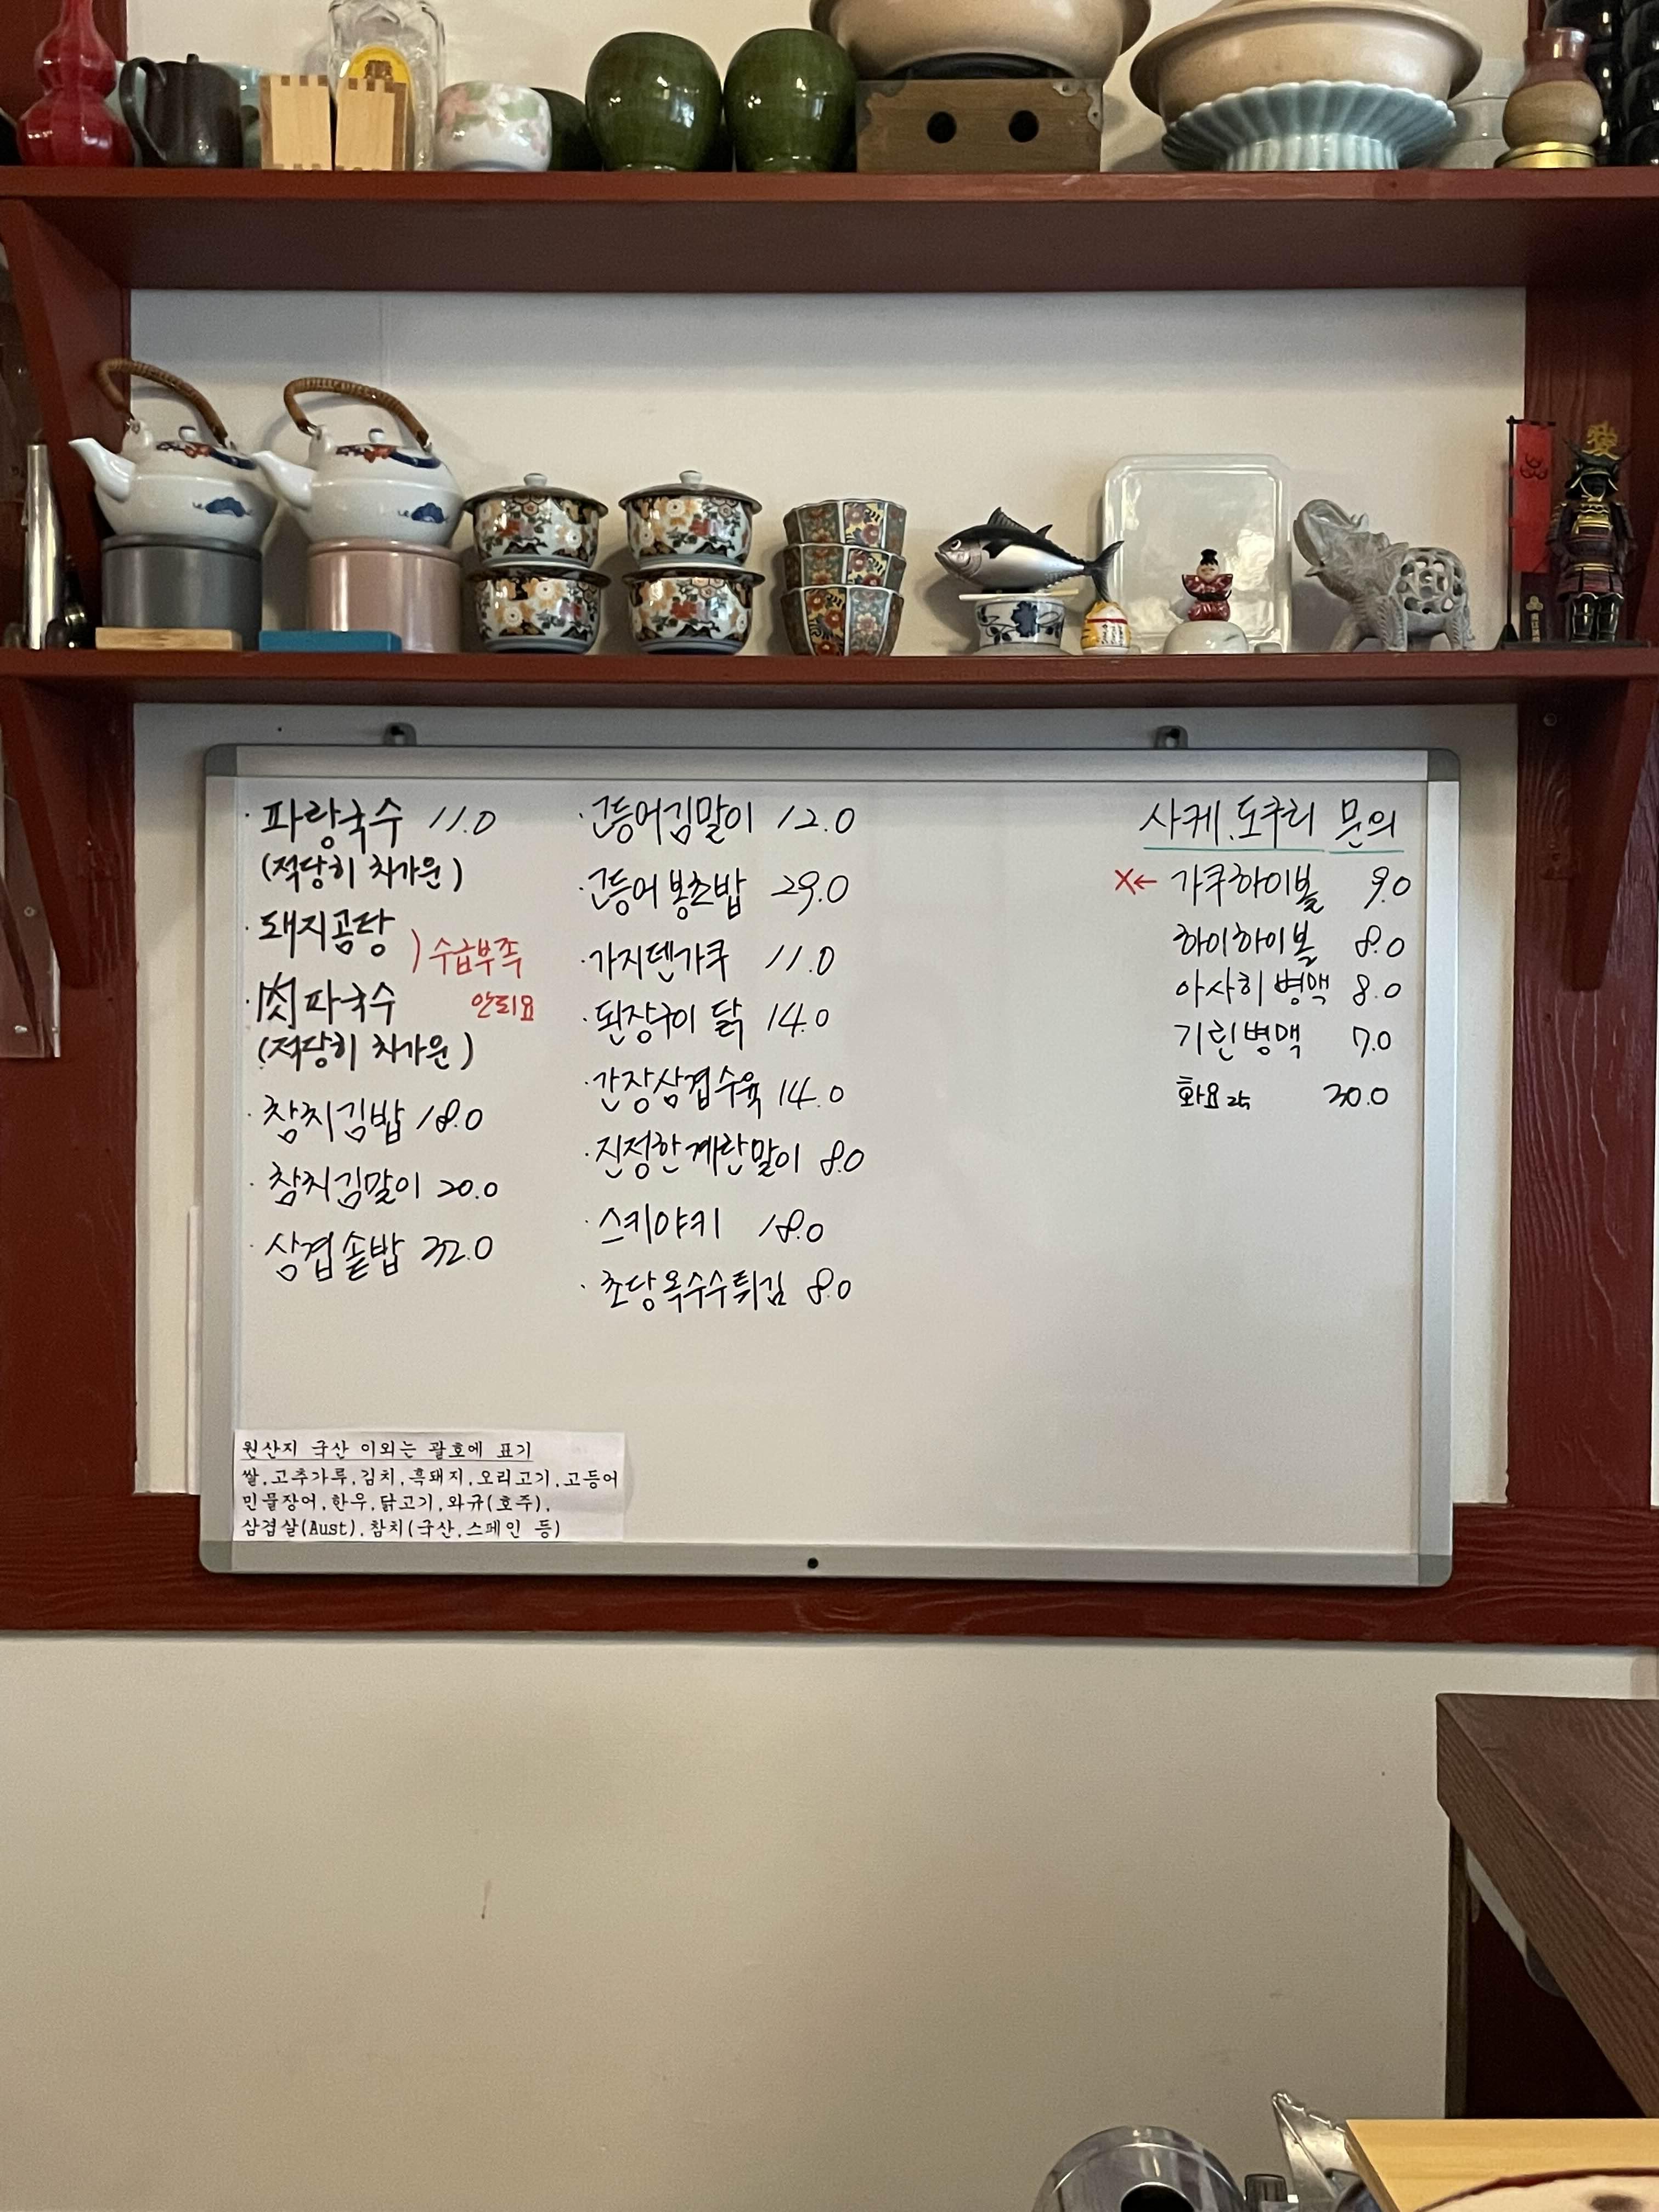 · 파랑국수 11.0
(적당히 차가운)
· 돼지곰탕
) 수급부족
· 肉파국수 안되요
(적당히 차가운)
· 참치김밥 18.0
· 참치김말이 20.0
· 삼겹솥밥 32.0
· 고등어김말이 12.0
· 고등어 봉초밥 29.0
· 가지덴가쿠 11.0
· 된장구이 닭 14.0
· 간장삼겹수육 14.0
· 진정한계란말이 8.0
· 스키야키 18.0
· 초당옥수수튀김 8.0
사케.도쿠리 문의
X← 가쿠하이볼 9.0
하이하이볼 8.0
아사히 병맥 8.0
기린병맥 7.0
화요 25 30.0
원산지 국산 이외는 괄호에 표기
쌀,고추가루,김치,흑돼지,오리고기,고등어
민물장어,한우,닭고기,와규(호주),
삼겹살(Aust),참치(국산,스페인 등)
愛